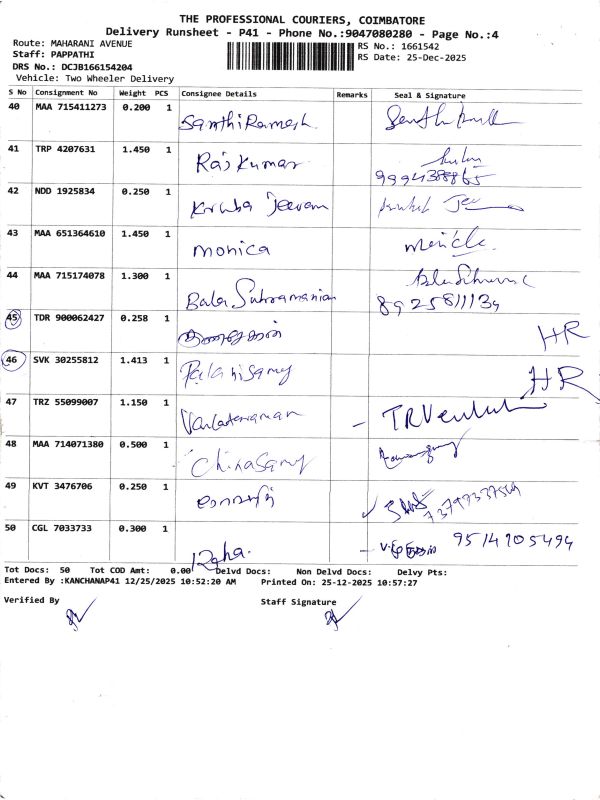 THE PROFESSIONAL COURIERS, COIMBATORE
Delivery Runsheet - P41 - Phone No.:9047080280 - Page No.:4
Route: MAHARANI AVENUE
Staff: PAPPATHI
DRS No.: DCJB166154204
Vehicle: Two Wheeler Delivery
RS No.: 1661542
RS Date: 25-Dec-2025
S No Consignment No Weight PCS Consignee Details Remarks Seal & Signature
40 MAA 715411273 0.200 1 Santhi Ramesh.
41 TRP 4207631 1.450 1 Raj Kumar
42 NDD 1925834 0.250 1 Kruba Jeevam
43 MAA 651364610 1.450 1 monica
44 MAA 715174078 1.300 1 Bala Subramanian 8925811134
45 TDR 900062427 0.258 1 HR
46 SVK 30255812 1.413 1 Palanisamy HR
47 TRZ 55099007 1.150 1 - TRVenkat
48 MAA 714071380 0.500 1 Chinasamy
49 KVT 3476706 0.250 1
50 CGL 7033733 0.300 1 9514705494
Tot Docs: 50 Tot COD Amt: 0.00 Delvd Docs: Non Delvd Docs: Delvy Pts:
Entered By :KANCHANAP41 12/25/2025 10:52:20 AM Printed On: 25-12-2025 10:57:27
Verified By Staff Signature